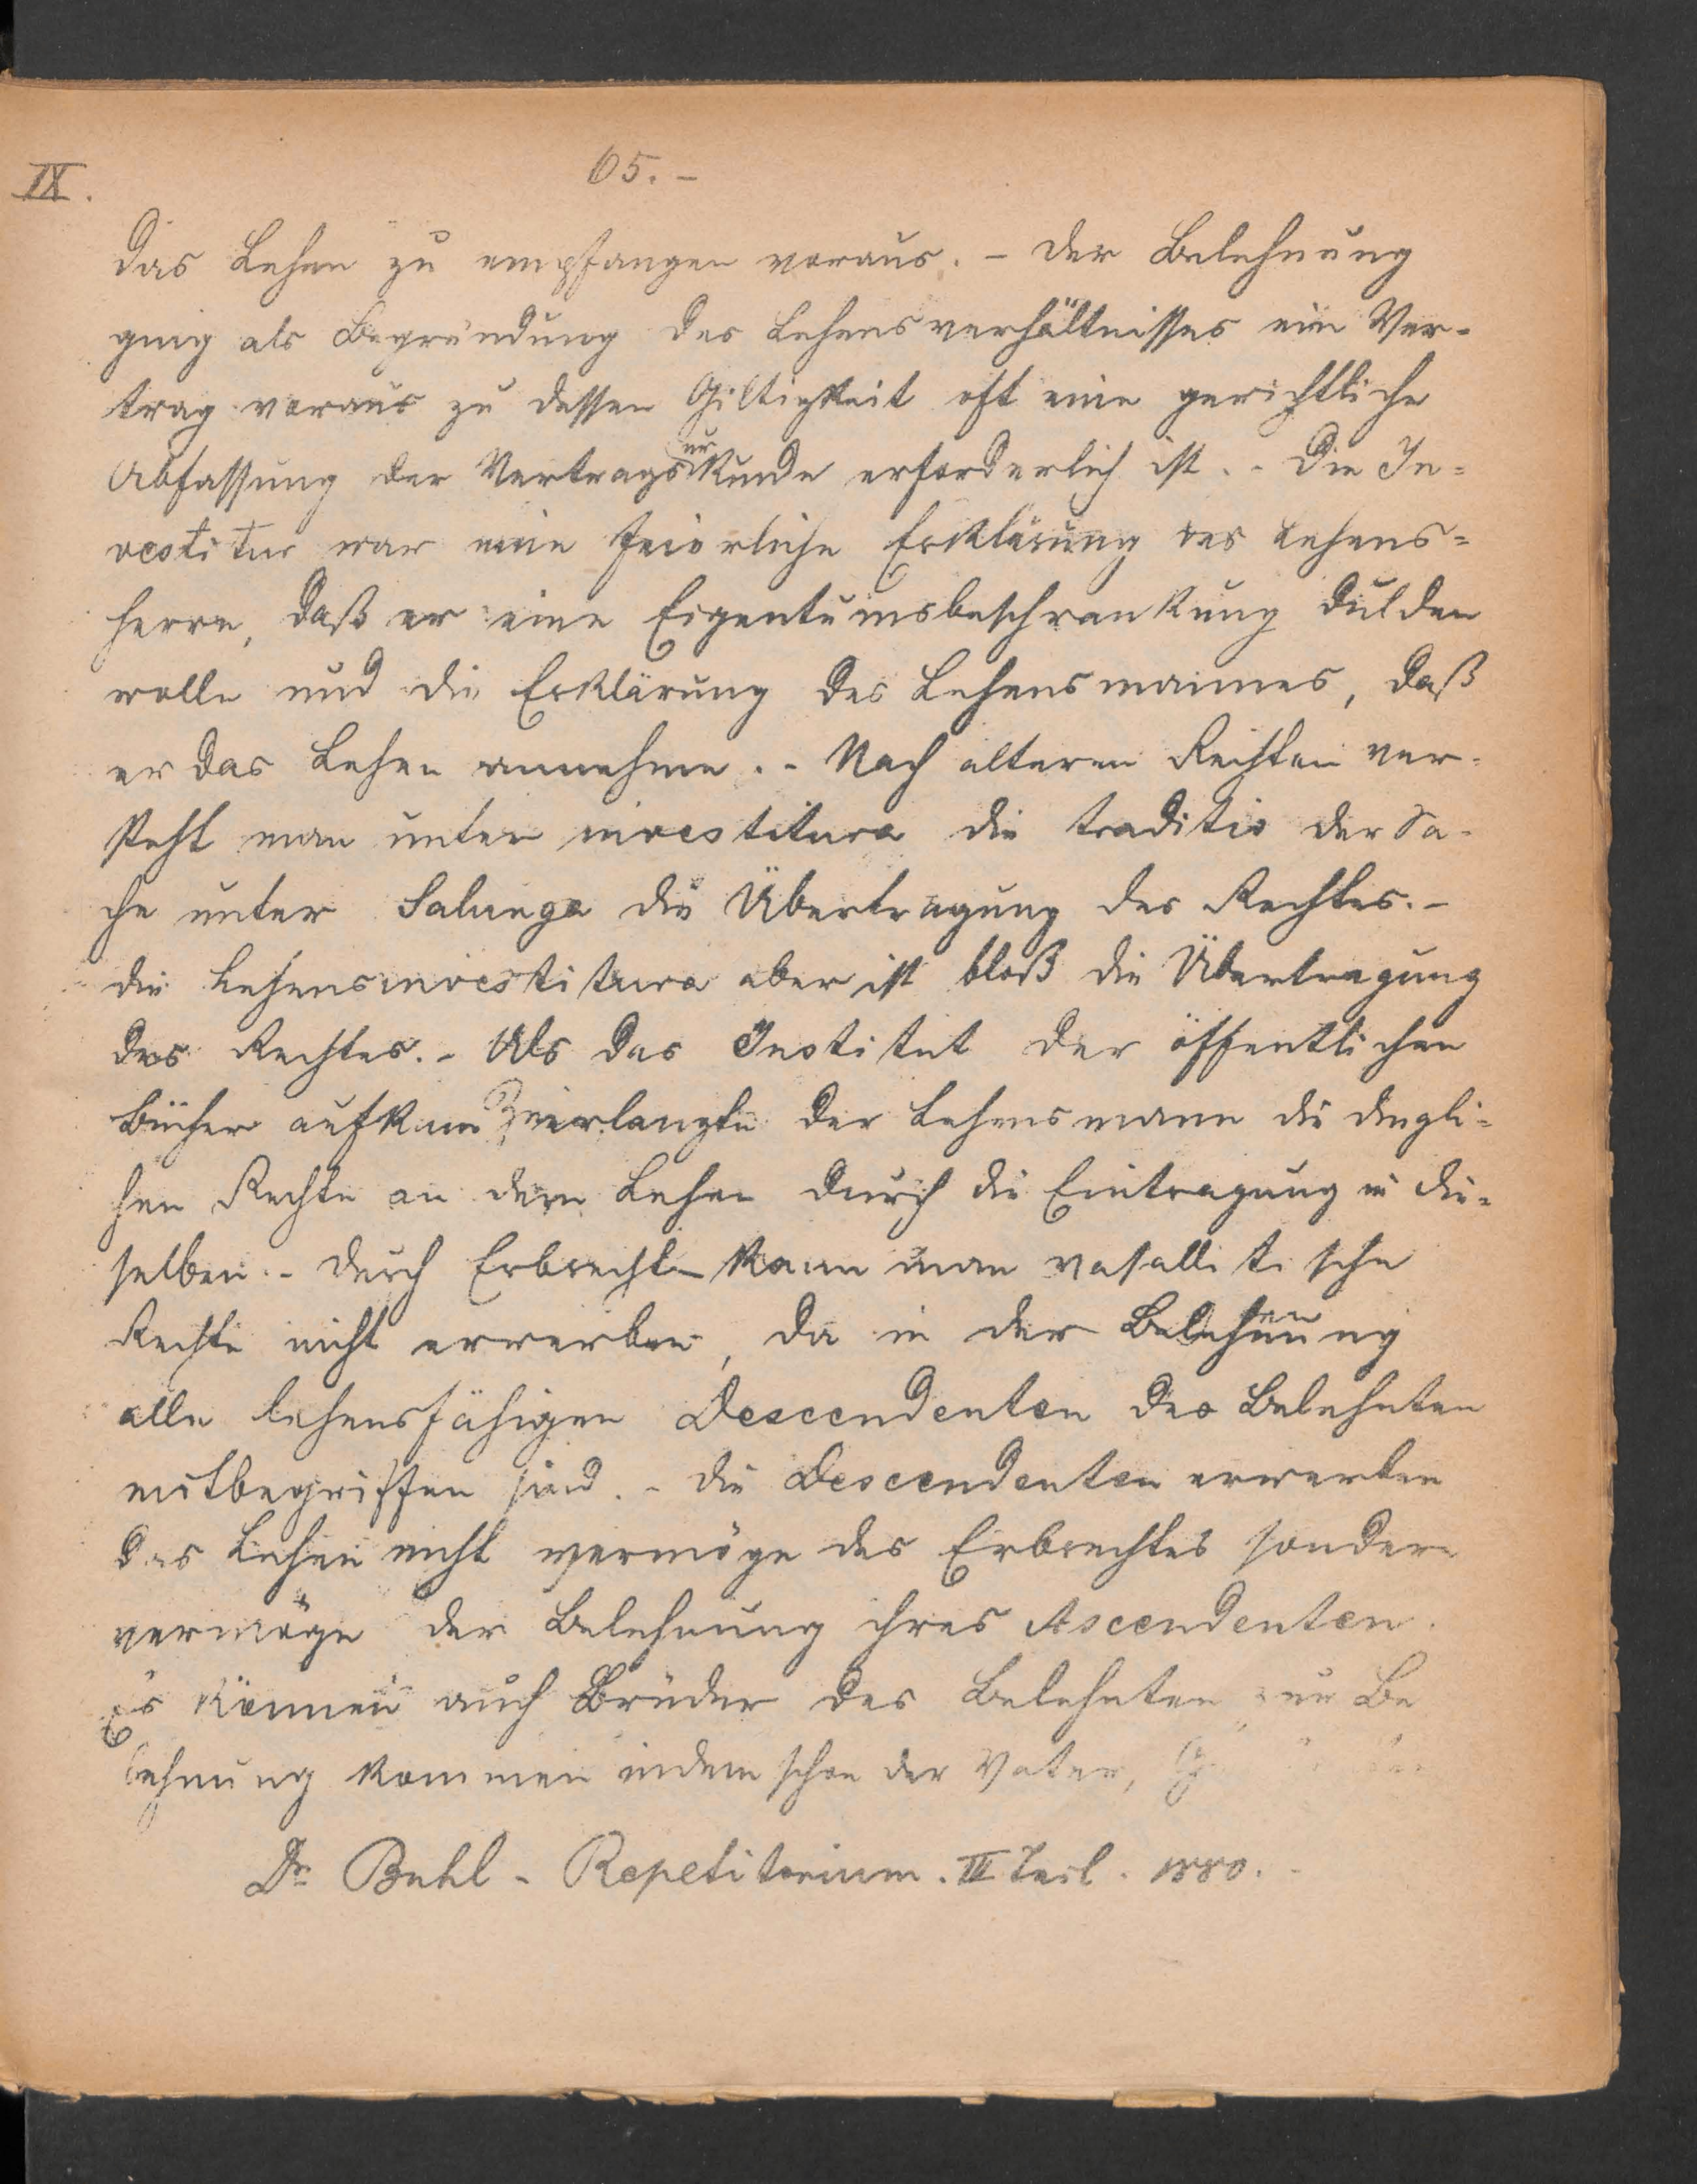 IX.
65.-
das Lehen zu empfangen voraus. - Der Belehnung
ging als Begründung des Lehensverhältnisses ein Ver-
trag voraus zu dessen Giltigkeit oft eine gerichtliche
Abfassung der Vertragsurkunde erforderlich ist. - Die In-
vestitur war eine feierliche Erklärung des Lehens-
herrn, daß er eine Eigentumsbeschrankung dulden
wolle und die Erklärung des Lehensmannes, daß
er das Lehen annehme. - Nach alteren Rechten ver-
steht man unter investitura die traditio der Sa-
che unter Salunga die Übertragung des Rechtes. -
die Lehensinvestitura aber ist bloß die Übertragung
des Rechtes. - Als das Institut der öffentlichen
Bücher aufkam erlangte der Lehensmann die dingli-
hen Rechte an dem Lehen durch die Eintragung in die-
selben. - Durch Erbrecht kann man vasallitische
Rechte nicht erwerben, da in der Belehnung
alle lehensfähigen Descendenten des Belehnten
mitbegriffen sind. - Die Descendenten erwerben
das Lehen nicht vermöge des Erbrechtes sondern
vermöge der Belehnung ihres Ascendenten.
Es können auch Brüder des Belehnten zur Be
lehnung kommen indem schon der Vater,
Dr Buhl - Repetitorium. III Teil. 1880. -